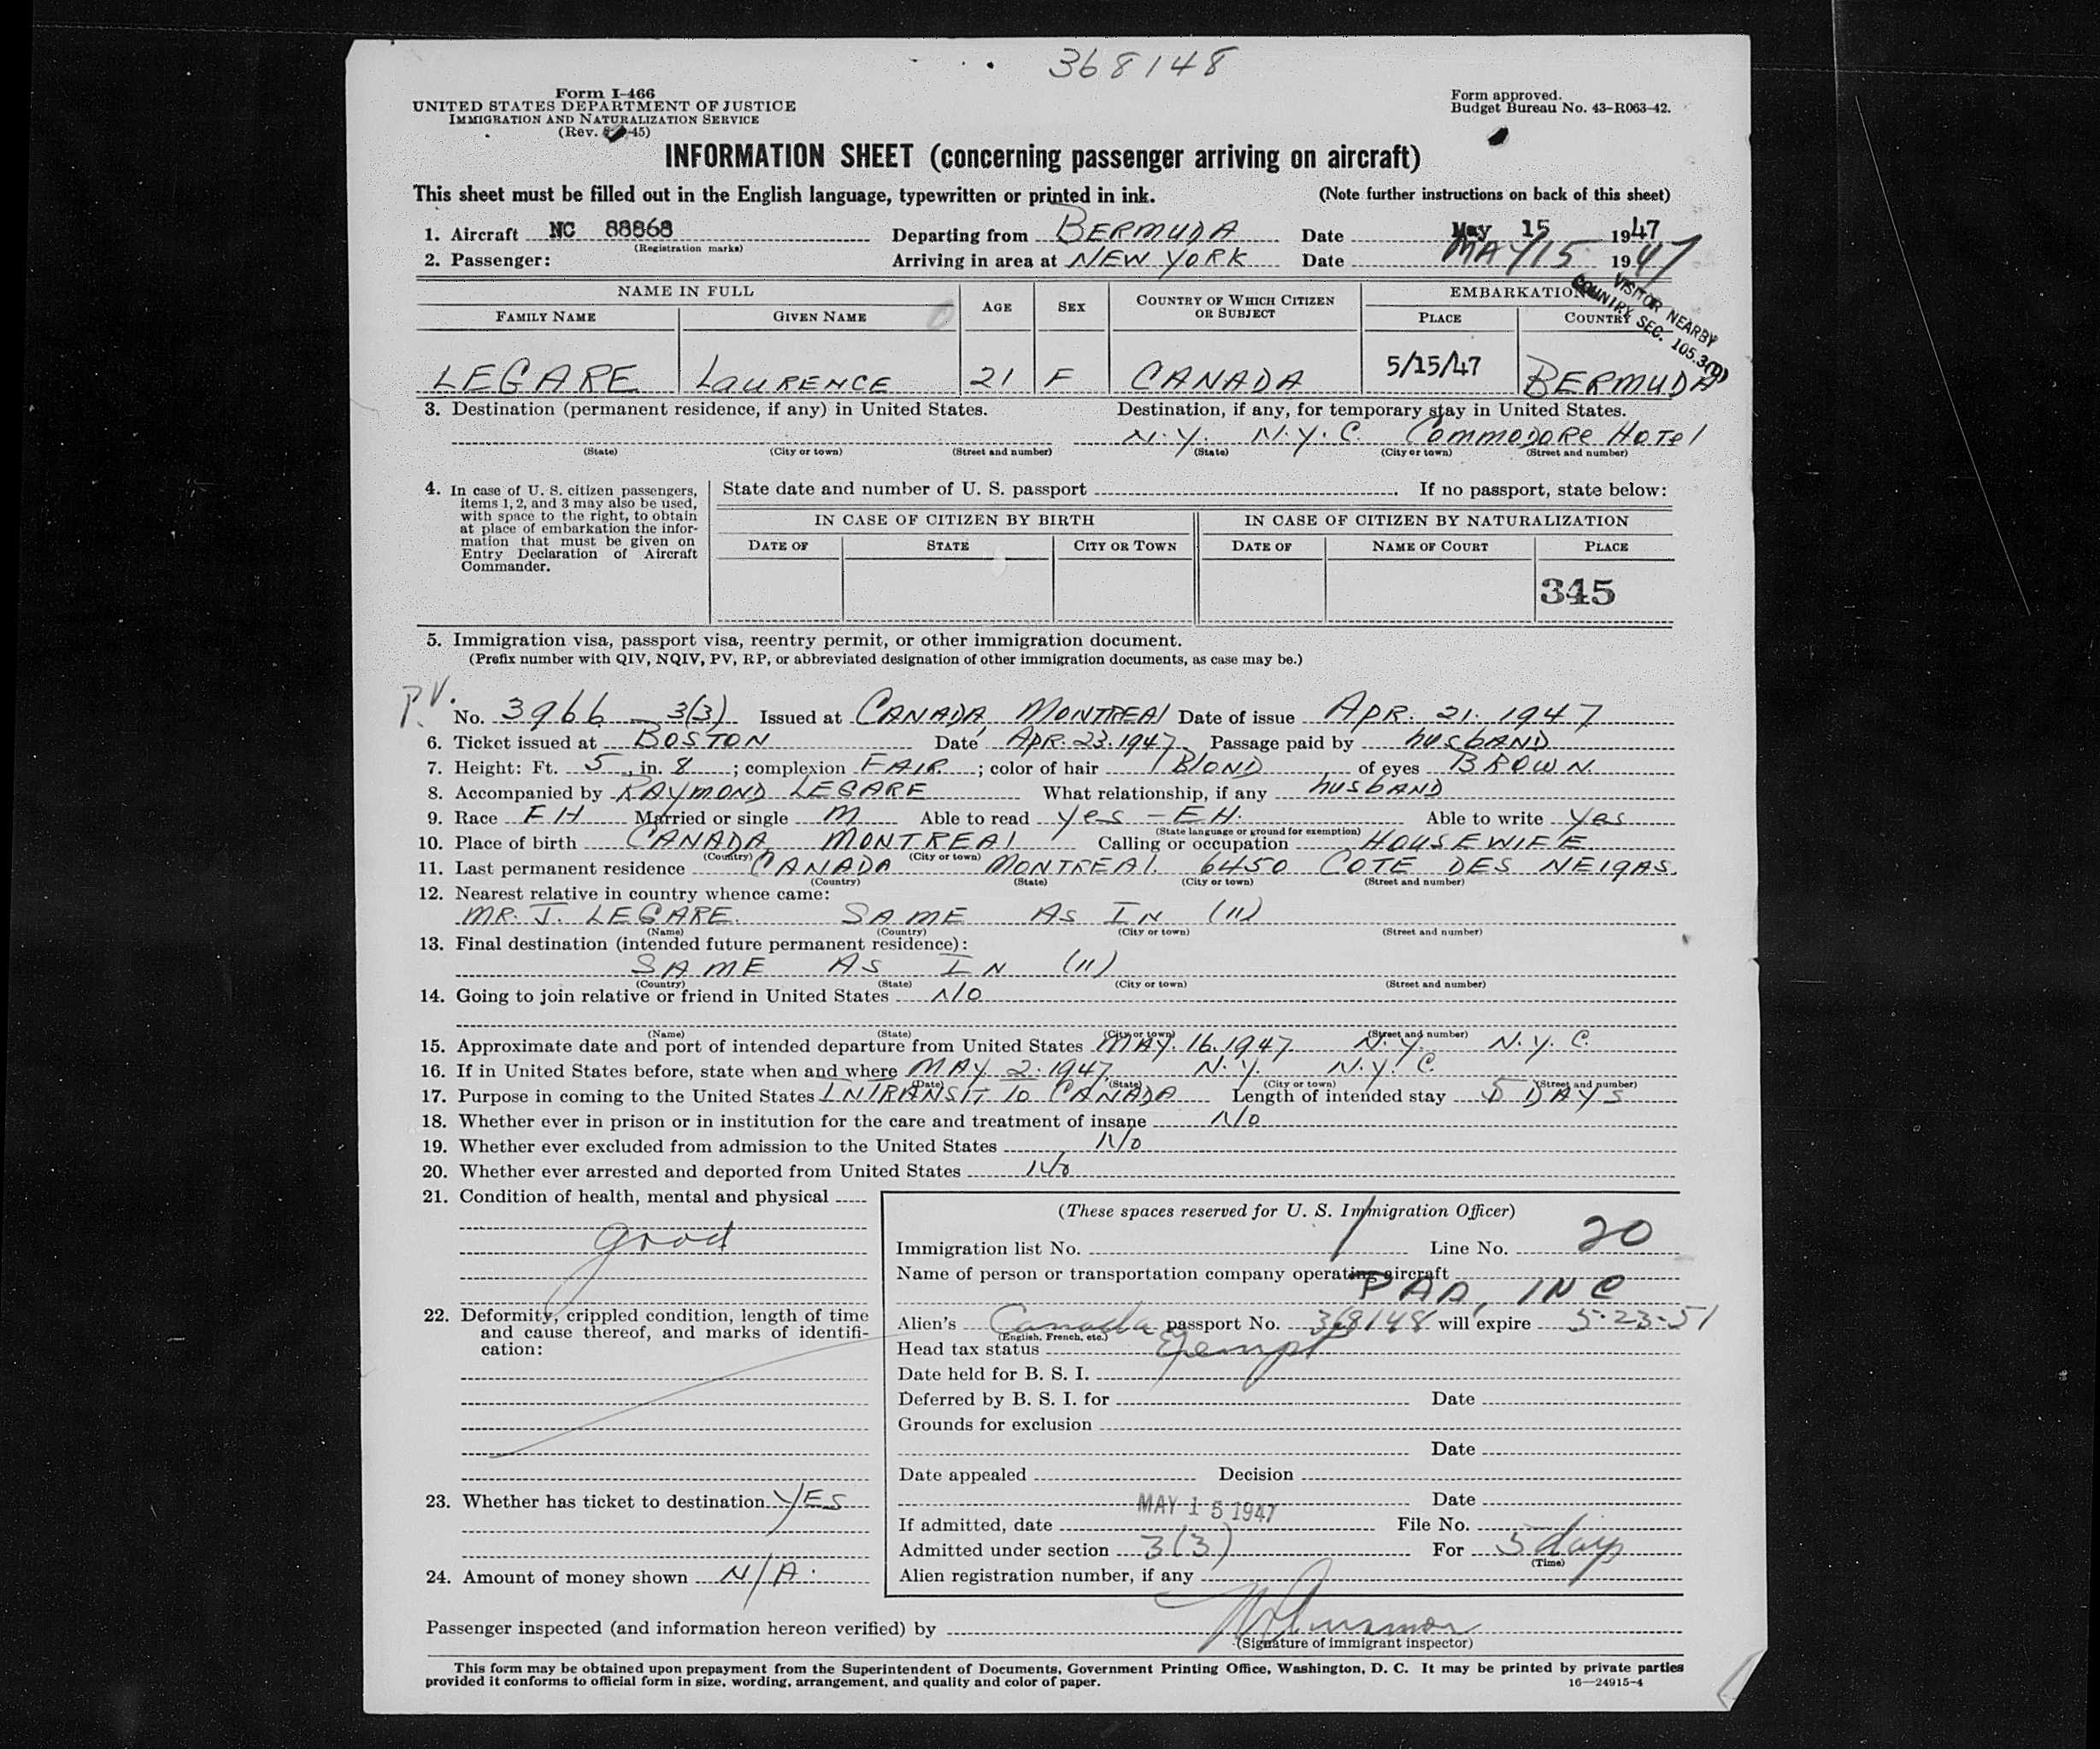 368148
Form I-466
UNITED STATES DEPARTMENT OF JUSTICE
IMMIGRATION AND NATURALIZATION SERVICE
(Rev. -45)
Form approved.
Budget Bureau No. 43-R063-42.
INFORMATION SHEET (concerning passenger arriving on aircraft)
This sheet must be filled out in the English language, typewritten or printed in ink. (Note further instructions on back of this sheet)
1. Aircraft NC 88868 Departing from BERMUDA Date May 15 1947
(Registration marks)
2. Passenger: Arriving in area at NEW YORK Date MAY 15 1947
VISITOR NEARBY
COUNTRY SEC. 105.3(D)
NAME IN FULL AGE SEX COUNTRY OF WHICH CITIZEN OR SUBJECT EMBARKATION
FAMILY NAME GIVEN NAME PLACE COUNTRY
LEGARE LAURENCE 21 F CANADA 5/15/47 BERMUDA
3. Destination (permanent residence, if any) in United States. Destination, if any, for temporary stay in United States.
N.Y. N.Y.C. COMMODORE HOTEl
(State) (City or town) (Street and number) (State) (City or town) (Street and number)
4. In case of U. S. citizen passengers,
items 1, 2, and 3 may also be used,
with space to the right, to obtain
at place of embarkation the infor-
mation that must be given on
Entry Declaration of Aircraft
Commander.
State date and number of U. S. passport If no passport, state below:
IN CASE OF CITIZEN BY BIRTH IN CASE OF CITIZEN BY NATURALIZATION
DATE OF STATE CITY OR TOWN DATE OF NAME OF COURT PLACE
345
5. Immigration visa, passport visa, reentry permit, or other immigration document.
(Prefix number with QIV, NQIV, PV, RP, or abbreviated designation of other immigration documents, as case may be.)
P.V. No. 3966 - 3(3) Issued at CANADA, MONTREAl Date of issue APR. 21. 1947
6. Ticket issued at BOSTON Date APR. 23. 1947 Passage paid by husbAND
7. Height: Ft. 5, in. 8; complexion FAIR; color of hair BlOND of eyes BROWN
8. Accompanied by RAYMOND LEGARE What relationship, if any husbAND
9. Race FH Married or single M Able to read yes - EH. Able to write yes
(State language or ground for exemption)
10. Place of birth CANADA MONTREAl Calling or occupation HOUSEWIFE
(Country) (City or town)
11. Last permanent residence CANADA MONTREAl. 6450 COTE DES NEIGAS.
(Country) (State) (City or town) (Street and number)
12. Nearest relative in country whence came:
MR. J. LEGARE. SAME AS IN (11)
(Name) (Country) (City or town) (Street and number)
13. Final destination (intended future permanent residence):
SAME AS IN (11)
(Country) (State) (City or town) (Street and number)
14. Going to join relative or friend in United States NO
(Name) (State) (City or town) (Street and number)
15. Approximate date and port of intended departure from United States MAY. 16. 1947 N.Y. N.Y.C.
16. If in United States before, state when and where MAY 2. 1947 N.Y. N.Y.C.
(Date) (State) (City or town) (Street and number)
17. Purpose in coming to the United States INTRANSIT TO CANADA Length of intended stay 5 DAYS
18. Whether ever in prison or in institution for the care and treatment of insane NO
19. Whether ever excluded from admission to the United States NO
20. Whether ever arrested and deported from United States NO
21. Condition of health, mental and physical
good
22. Deformity, crippled condition, length of time
and cause thereof, and marks of identifi-
cation:
23. Whether has ticket to destination YES
24. Amount of money shown N/A.
(These spaces reserved for U. S. Immigration Officer)
Immigration list No. 1 Line No. 20
Name of person or transportation company operating aircraft
PAA, INC
Alien's Canada passport No. 368148 will expire 5-23-51
(English, French, etc.)
Head tax status Exempt
Date held for B. S. I.
Deferred by B. S. I. for Date
Grounds for exclusion
Date
Date appealed Decision
Date
If admitted, date MAY 15 1947 File No.
Admitted under section 3(3) For 5 days
(Time)
Alien registration number, if any
Passenger inspected (and information hereon verified) by
(Signature of immigrant inspector)
This form may be obtained upon prepayment from the Superintendent of Documents, Government Printing Office, Washington, D. C. It may be printed by private parties
provided it conforms to official form in size, wording, arrangement, and quality and color of paper. 16—24915-4